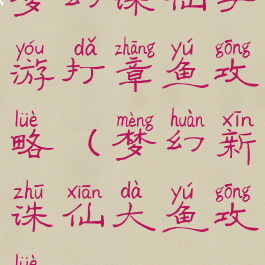 梦幻诛仙手
yóu dǎ zhāng yú gōng
游打章鱼攻
lüè mèng huàn xīn
略（梦幻新
zhū xiān dà yú gōng
诛仙大鱼攻
lüè